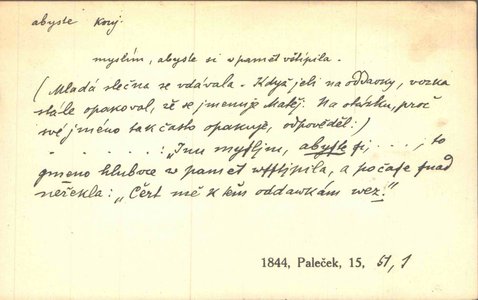 abyste konj.
myslím, abyste si v paměť vštípila.
(Mladá slečna se vdávala. Když jeli na oddavky, vozka
stále opakoval, že se jmenuje Matěj. Na otázku, proč
své jméno tak často opakuje, odpověděl:)
. . . . . . : „Inu myſljm, abyſte ſi, . . . , to
gméno hluboce w paměť wſſtjpila, a počaſe ſnad
neřekla: „Čert mě k těm oddawkám wez."
1844, Paleček, 15, 51, 1